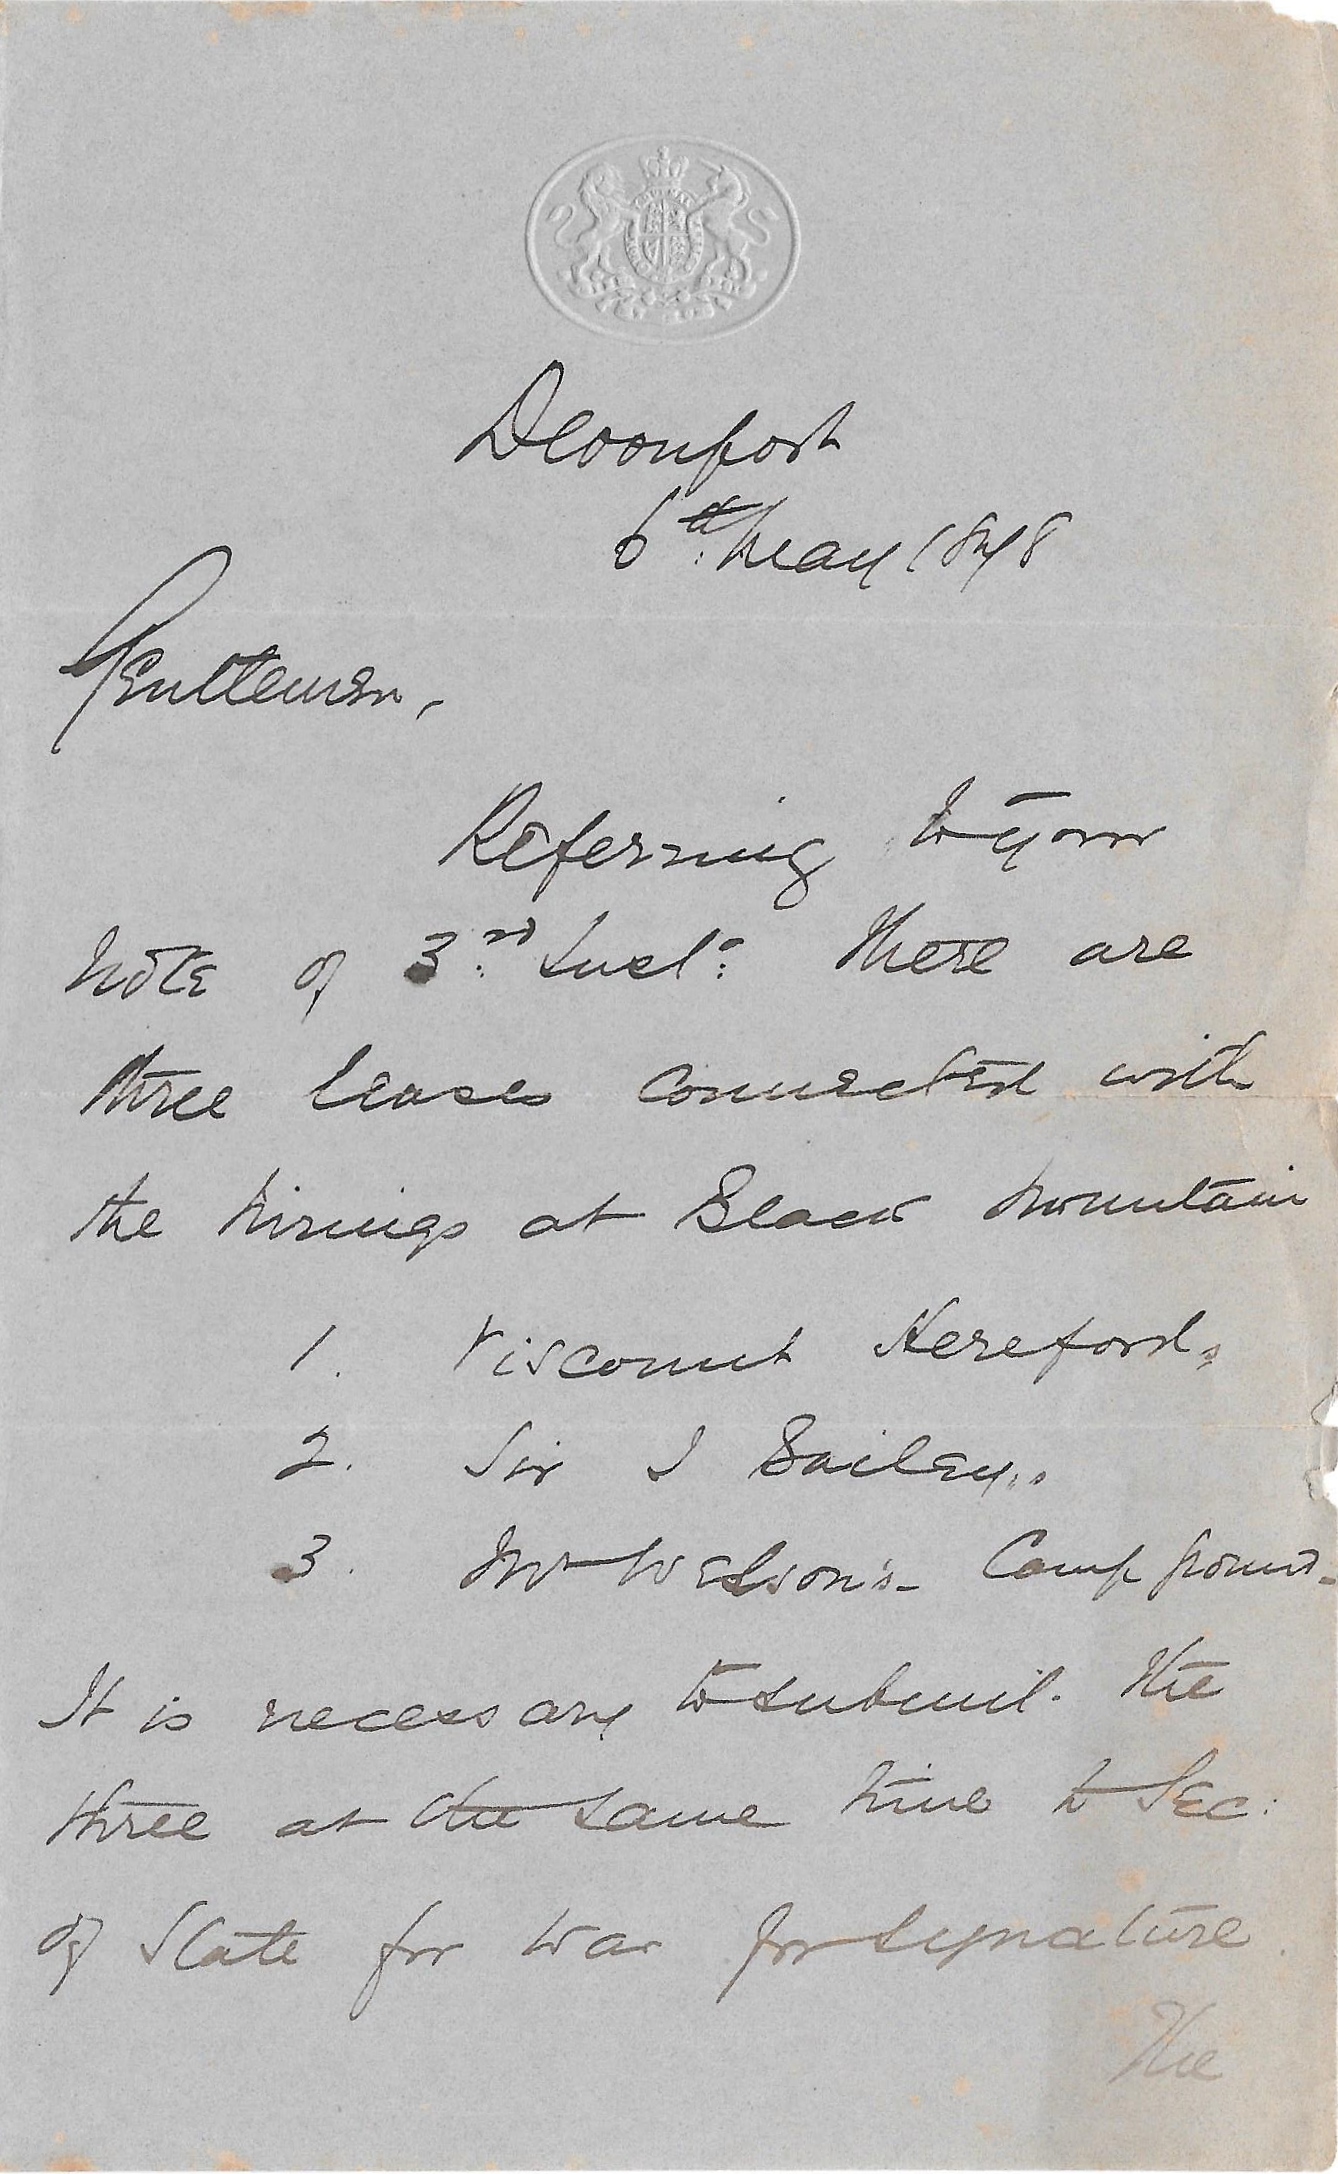 Devonport
6th. May 1898
Gentlemen,
Referring to your
note of 3rd. Inst. there are
three leases connected with
the hirings at Black Mountain
1. Viscount Hereford,
2. Sir J Bailey,
3. Mr Welson's - Camp ground -
It is necessary to submit the
three at the same time to Sec:
of State for War for signature.
The